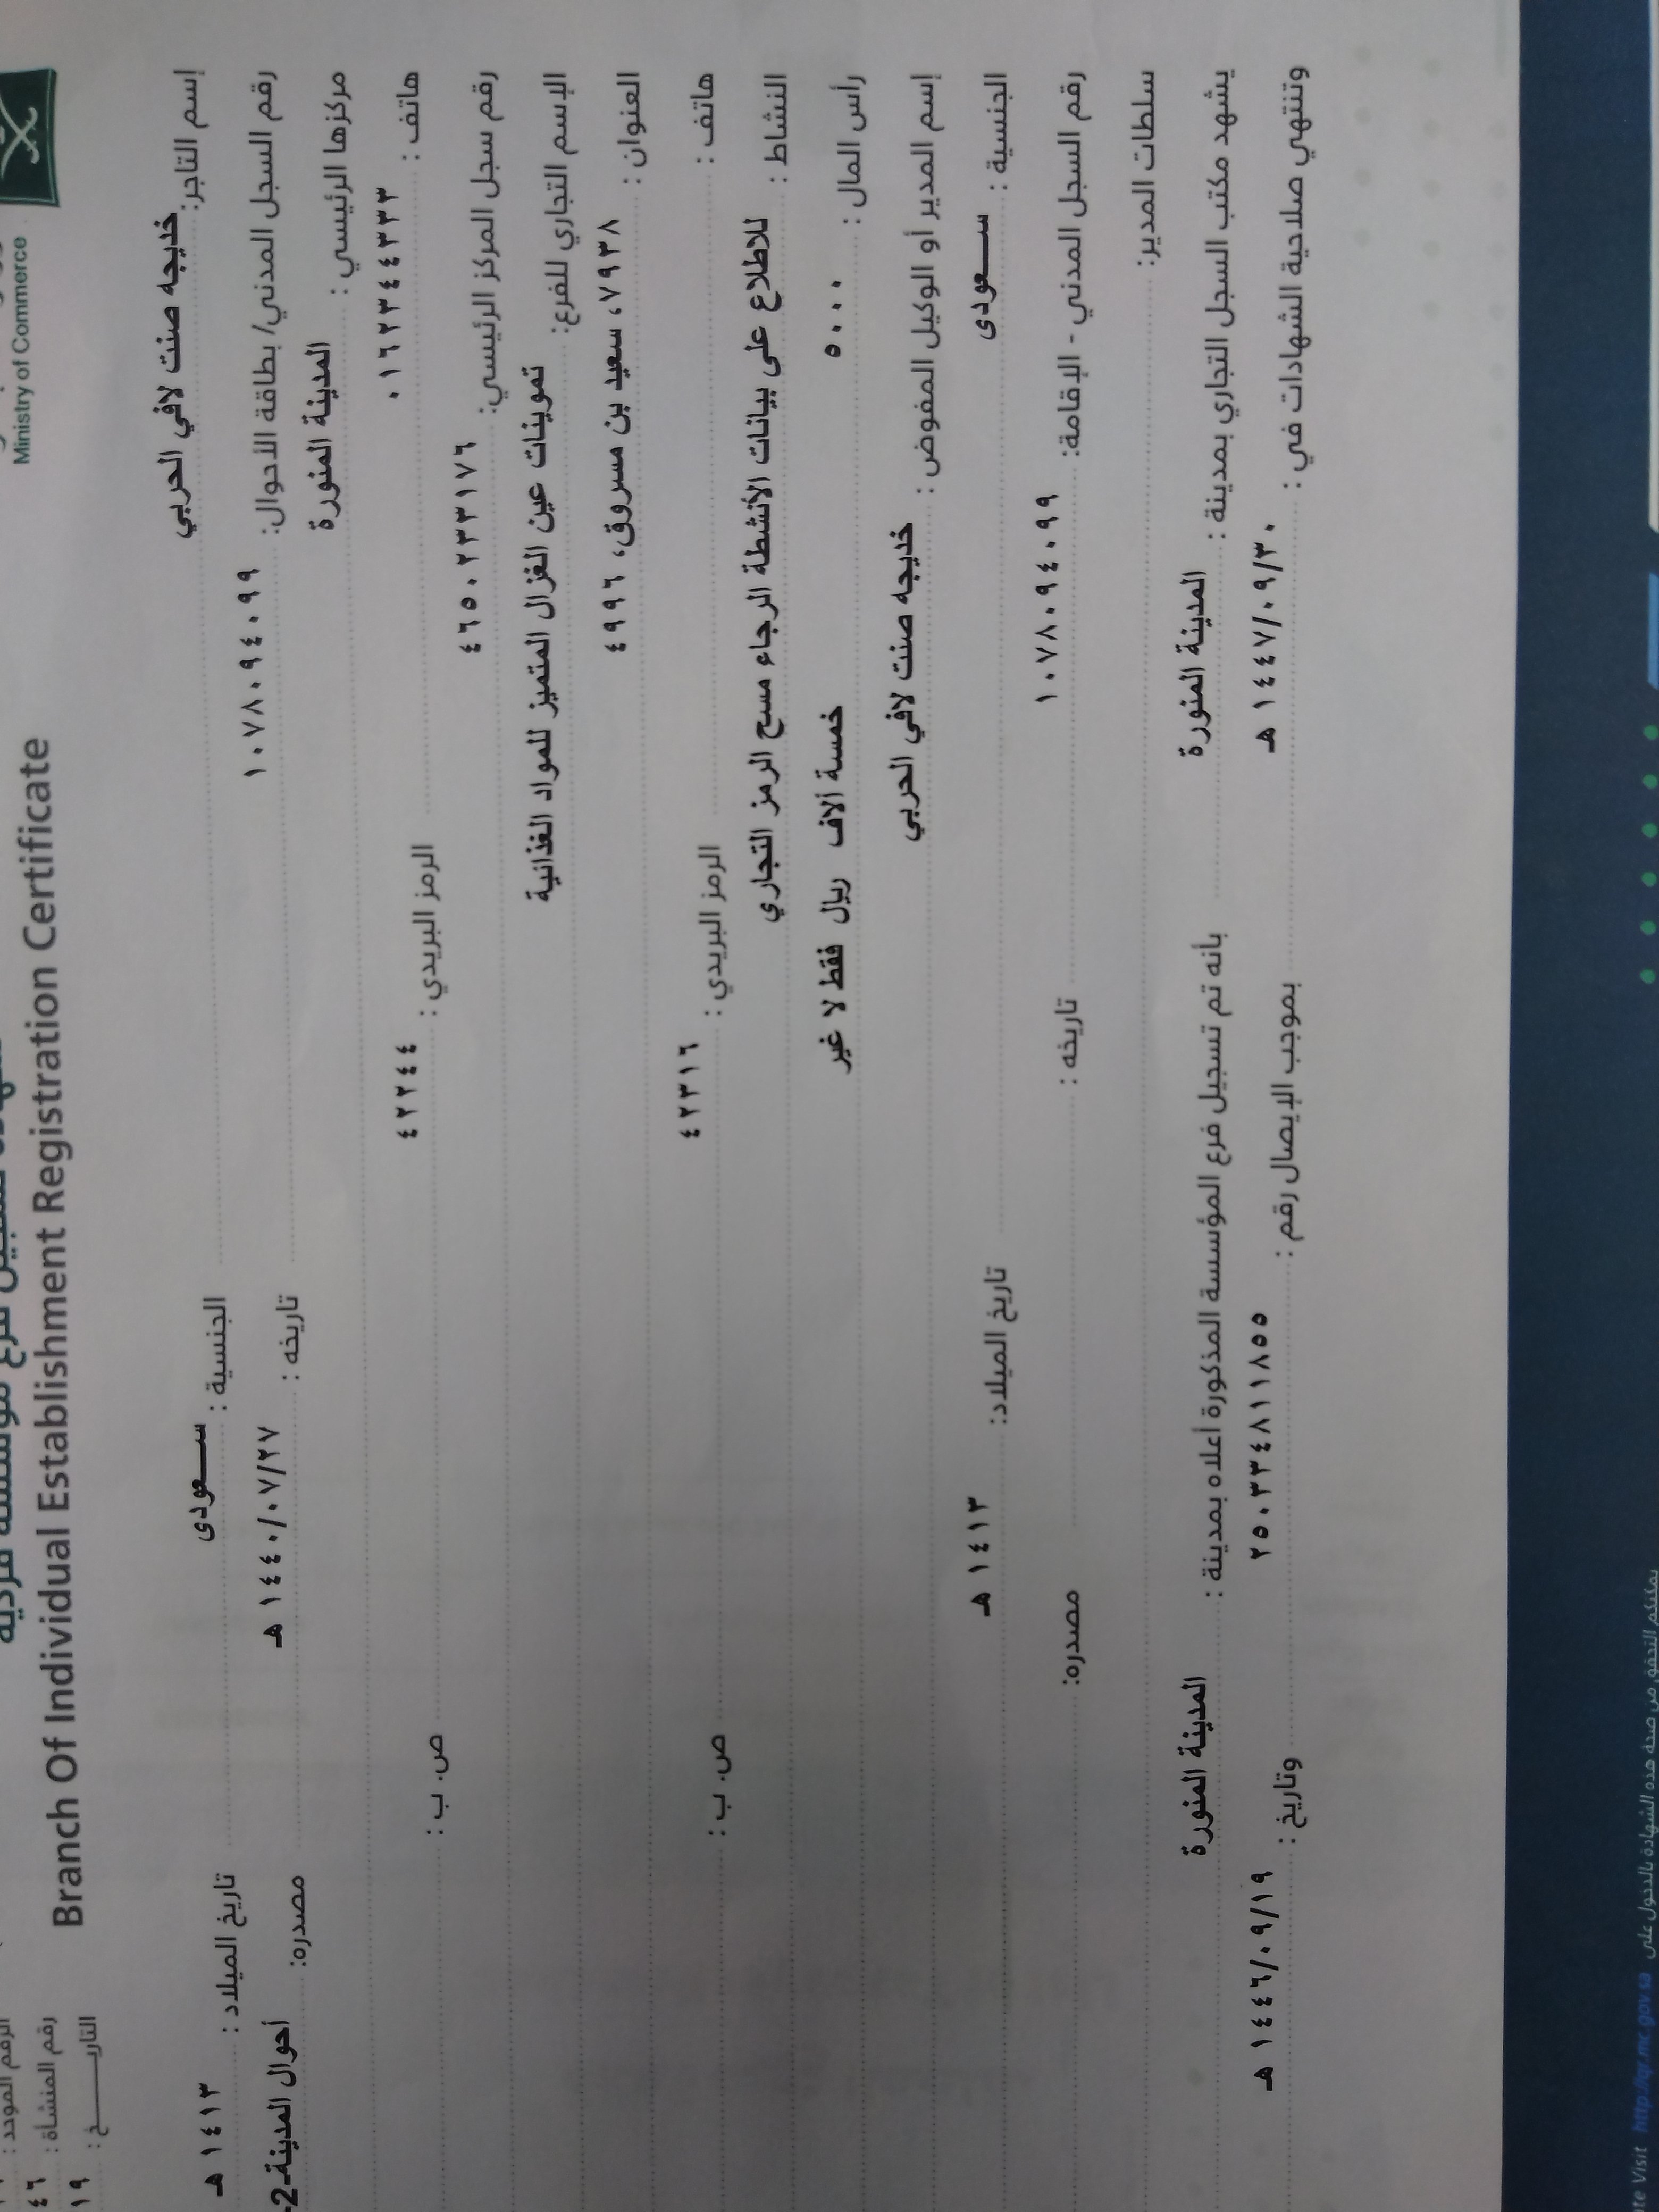 Ministry of Commerce
Branch Of Individual Establishment Registration Certificate
الرقم الموحد :
رقم المنشأة : ٤٦
التاريـــــخ : ١٩
إسم التاجر: خديجه صنت لافي الحربي الجنسية : ســـعودى تاريخ الميلاد : ١٤١٣ هـ
رقم السجل المدني/ بطاقة الأحوال: ١٠٧٨٠٩٤٠٩٩ تاريخه : ١٤٤٠/٠٧/٢٧ هـ مصدره: أحوال المدينة-2
مركزها الرئيسي : المدينة المنورة
هاتف : ٠١٦٢٣٤٤٣٣٣ الرمز البريدي : ٤٢٢٤٤ ص. ب :
رقم سجل المركز الرئيسي: ٤٦٥٠٢٣٣١٧٦
الإسم التجاري للفرع: تموينات عين الغزال المتميز للمواد الغذائية
العنوان : ٧٩٣٨، سعيد بن مسروق، ٤٩٩٦
هاتف : الرمز البريدي : ٤٢٣١٦ ص. ب :
النشاط : للاطلاع على بيانات الأنشطة الرجاء مسح الرمز التجاري
رأس المال : ٥٠٠٠ خمسة آلاف ريال فقط لا غير
إسم المدير أو الوكيل المفوض : خديجه صنت لافي الحربي
الجنسية : ســـعودى تاريخ الميلاد: ١٤١٣ هـ
رقم السجل المدني - الإقامة: ١٠٧٨٠٩٤٠٩٩ تاريخه : مصدره:
سلطات المدير:
يشهد مكتب السجل التجاري بمدينة : المدينة المنورة بأنه تم تسجيل فرع المؤسسة المذكورة أعلاه بمدينة : المدينة المنورة
وتنتهي صلاحية الشهادات في : ١٤٤٧/٠٩/٣٠ هـ بموجب الإيصال رقم : ٢٥٠٣٣٤٨١١٨٥٥ وتاريخ : ١٤٤٦/٠٩/١٩ هـ
يمكنكم التحقق من صحة هذه الشهادة بالدخول على
Visit http://qr.mc.gov.sa